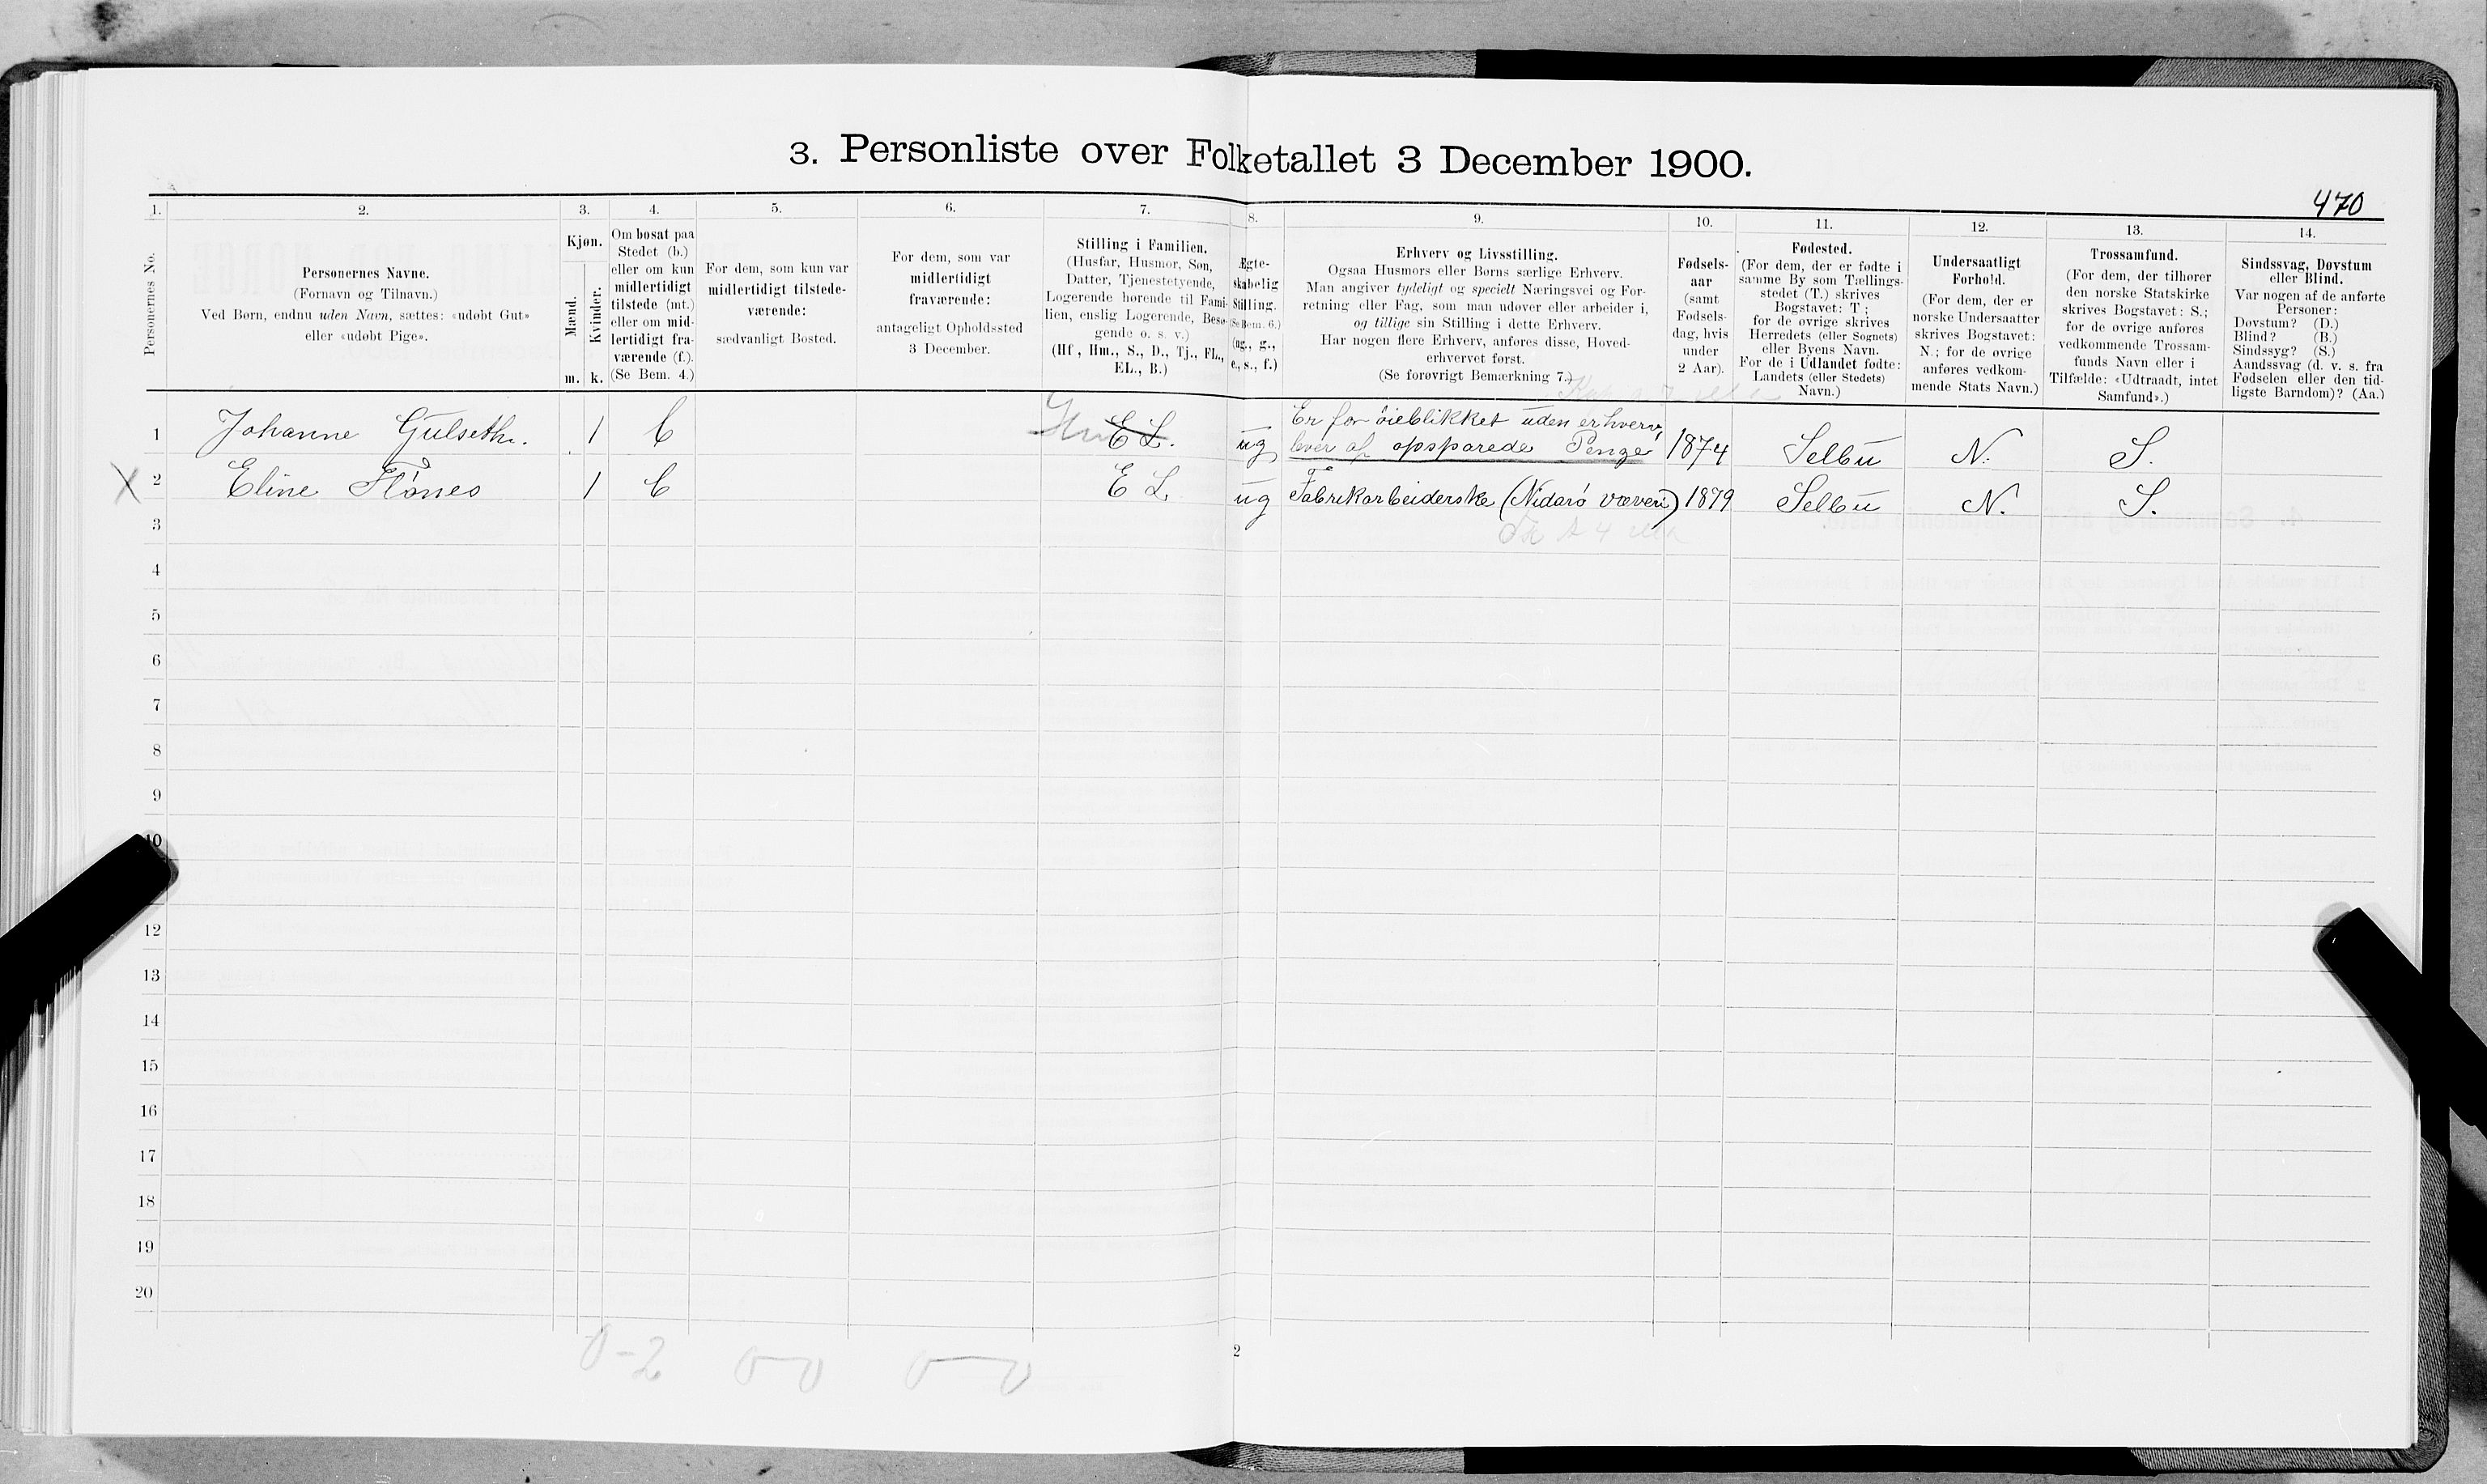 3. Personliste over Folketallet 3 December 1900.
470
1. 2. 3. 4. 5. 6. 7. 8. 9. 10. 11. 12. 13. 14.
Personernes No.
Personernes Navne.
(Fornavn og Tilnavn.)
Ved Børn, endnu uden Navn, sættes: «udøbt Gut»
eller «udøbt Pige».
Kjøn.
Mænd.
Kvinder.
m. k.
Om bosat paa
Stedet (b.)
eller om kun
midlertidigt
tilstede (mt.)
eller om mid-
lertidigt fra-
værende (f.).
(Se Bem. 4.)
For dem, som kun var
midlertidigt tilstede-
værende:
sædvanligt Bosted.
For dem, som var
midlertidigt
fraværende:
antageligt Opholdssted
3 December.
Stilling i Familien.
(Husfar, Husmor, Søn,
Datter, Tjenestetyende,
Logerende hørende til Fami-
lien, enslig Logerende, Besø-
gende o. s. v.)
(Hf., Hm., S., D., Tj., FL.,
EL., B.)
Ægte-
skabelig
Stilling.
(Se Bem. 6.)
(ug., g.,
e., s., f.)
Erhverv og Livsstilling.
Ogsaa Husmors eller Børns særlige Erhverv.
Man angiver tydeligt og specielt Næringsvei og For-
retning eller Fag, som man udøver eller arbeider i,
og tillige sin Stilling i dette Erhverv.
Har nogen flere Erhverv, anføres disse, Hoved-
erhvervet først.
(Se forøvrigt Bemærkning 7.)
Fødsels-
aar
(samt
Fødsels-
dag, hvis
under
2 Aar).
Fødested.
(For dem, der er fødte i
samme By som Tællings-
stedet (T.) skrives
Bogstavet: T;
for de øvrige skrives
Herredets (eller Sognets)
eller Byens Navn.
For de i Udlandet fødte:
Landets (eller Stedets)
Navn.)
Undersaatligt
Forhold.
(For dem, der er
norske Undersaatter
skrives Bogstavet:
N.; for de øvrige
anføres vedkom-
mende Stats Navn.)
Trossamfund.
(For dem, der tilhører
den norske Statskirke
skrives Bogstavet: S.;
for de øvrige anføres
vedkommende Trossam-
funds Navn eller i
Tilfælde: «Udtraadt, intet
Samfund».)
Sindssvag, Døvstum
eller Blind.
Var nogen af de anførte
Personer:
Døvstum? (D.)
Blind? (B.)
Sindssyg? (S.)
Aandssvag (d. v. s. fra
Fødselen eller den tid-
ligste Barndom)? (Aa.)
Er for øieblikket uden erhverv,
1 Johanne Gulseth. 1 b Hm E L. ug lever af opsparede Penge 1874 Selbu N. S.
X 2 Eline Flønes 1 b E L. ug Fabrikarbeiderske (Nidarø væveri) 1879 Selbu N. S.
3
4
5
6
7
8
9
10
12
13
14
15
16
17
18
19
20
0-2 0-0 0-0
2